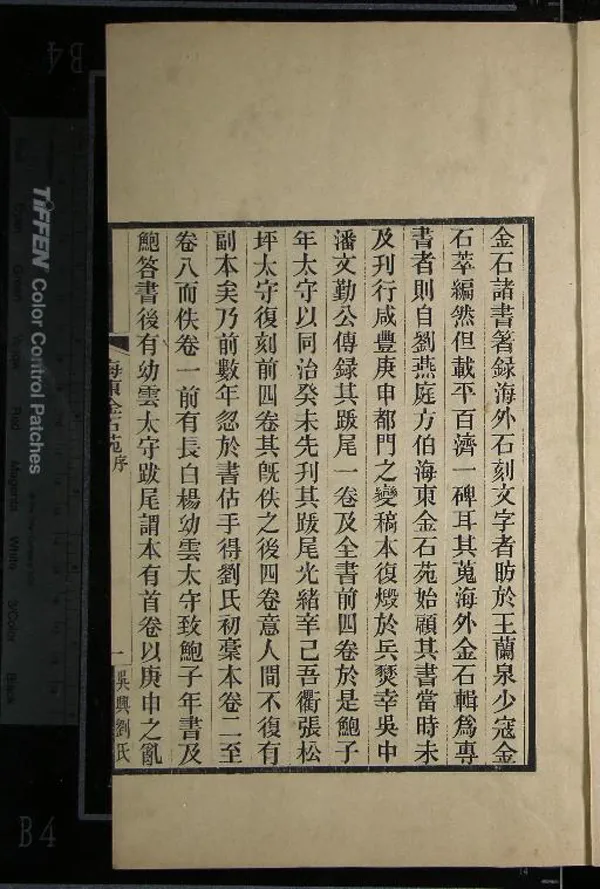 金石諸書箸録海外石刻文字者昉於王蘭泉少寇金
石萃編然但載平百濟一碑耳其蒐海外金石輯爲專
書者則自劉燕庭方伯海東金石苑始顧其書當時未
及刊行咸豐庚申都門之變稿本復燬於兵燹幸吳中
潘文勤公傳録其跋尾一卷及全書前四卷於是鮑子
年太守以同治癸未先刊其跋尾光緒辛己吾衢張松
坪太守復刻前四卷其旣佚之後四卷意人間不復有
副本矣乃前數年忽於書估手得劉氏初稾本卷二至
卷八而佚卷一前有長白楊幼雲太守致鮑子年書及
鮑答書後有幼雲太守跋尾謂本有首卷以庚申之亂
海東金石苑序
一
吳興劉氏
TIFFEN Color Control Patches
B4
B4